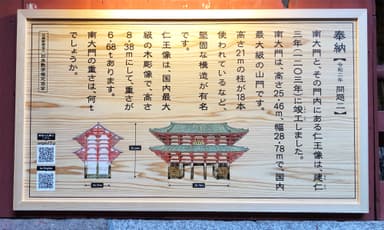 奉納【令和二年 問題二】
南大門と、その門内にある仁王像は、建仁
三年(一二〇三年)に竣工しました。
南大門は、高さ25・46m、幅28・78mで国内
最大級の山門です。
高さ21mの柱が18本
使われているなど、
堅固な構造が有名
です。
仁王像は、国内最大
級の木彫像で、高さ
8・38mにして、重さが
6・68tあります。
南大門の重さは、何t
でしょうか。